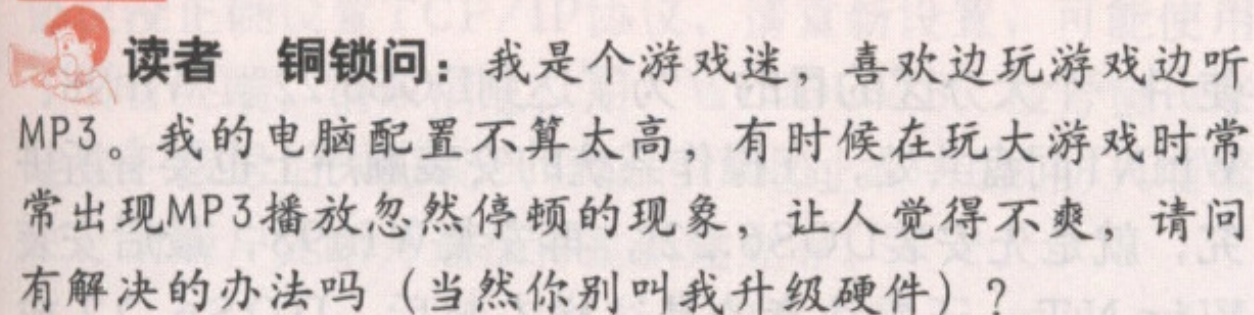 读者 铜锁问：我是个游戏迷，喜欢边玩游戏边听
MP3。我的电脑配置不算太高，有时候在玩大游戏时常
常出现MP3播放忽然停顿的现象，让人觉得不爽，请问
有解决的办法吗（当然你别叫我升级硬件）？